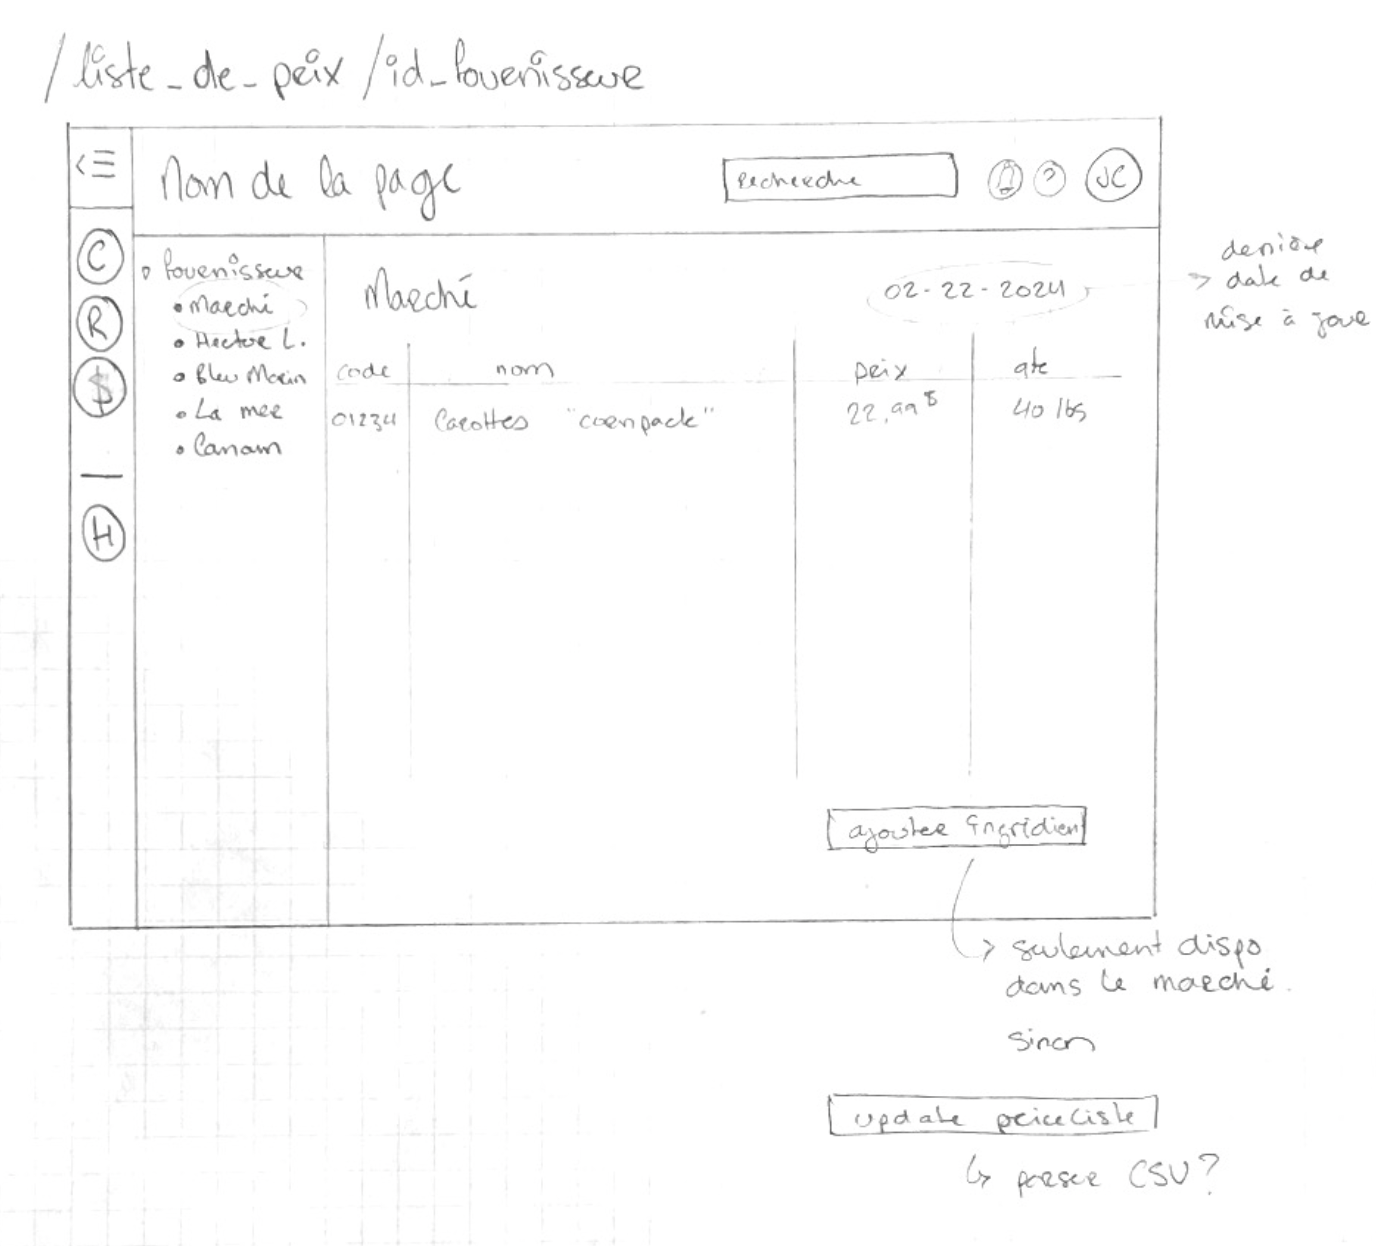 /liste_de_prix/id_fournisseur
<≡ Nom de la page
recherche
?
JC
C
R
$
H
fournisseur
Marché
Hector L.
Bleu Marin
La mer
Canam
Marché
02-22-2024
dernière
date de
mise à jour
code nom prix qte
01234 Carottes "cornpack" 22,99$ 40 lbs
ajouter ingrédien
seulement dispo
dans le marché.
sinon
update priceliste
parser CSV?